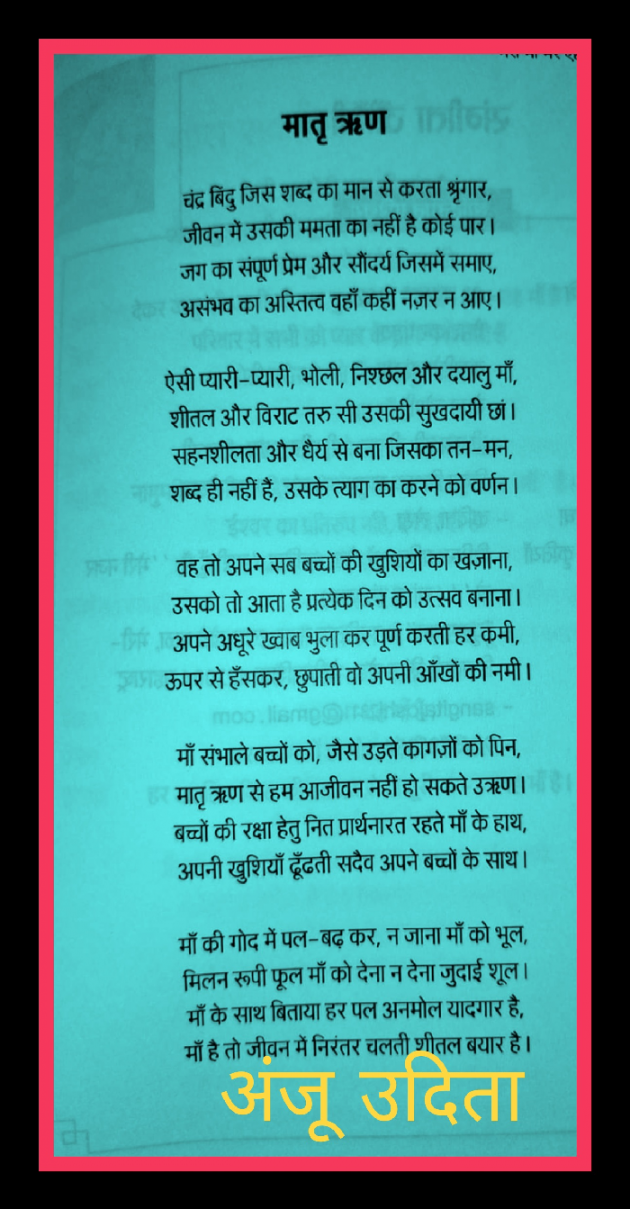 मातृ ऋण
चंद्र बिंदु जिस शब्द का मान से करता श्रृंगार,
जीवन में उसकी ममता का नहीं है कोई पार।
जग का संपूर्ण प्रेम और सौंदर्य जिसमें समाए,
असंभव का अस्तित्व वहाँ कहीं नज़र न आए।
ऐसी प्यारी-प्यारी, भोली, निश्छल और दयालु माँ,
शीतल और विराट तरु सी उसकी सुखदायी छां।
सहनशीलता और धैर्य से बना जिसका तन-मन,
शब्द ही नहीं हैं, उसके त्याग का करने को वर्णन।
वह तो अपने सब बच्चों की खुशियों का खज़ाना,
उसको तो आता है प्रत्येक दिन को उत्सव बनाना।
अपने अधूरे ख्वाब भुला कर पूर्ण करती हर कमी,
ऊपर से हँसकर, छुपाती वो अपनी आँखों की नमी।
माँ संभाले बच्चों को, जैसे उड़ते कागज़ों को पिन,
मातृ ऋण से हम आजीवन नहीं हो सकते उऋण।
बच्चों की रक्षा हेतु नित प्रार्थनारत रहते माँ के हाथ,
अपनी खुशियाँ ढूँढती सदैव अपने बच्चों के साथ।
माँ की गोद में पल-बढ़ कर, न जाना माँ को भूल,
मिलन रूपी फूल माँ को देना न देना जुदाई शूल।
माँ के साथ बिताया हर पल अनमोल यादगार है,
माँ है तो जीवन में निरंतर चलती शीतल बयार है।
अंजू उदिता